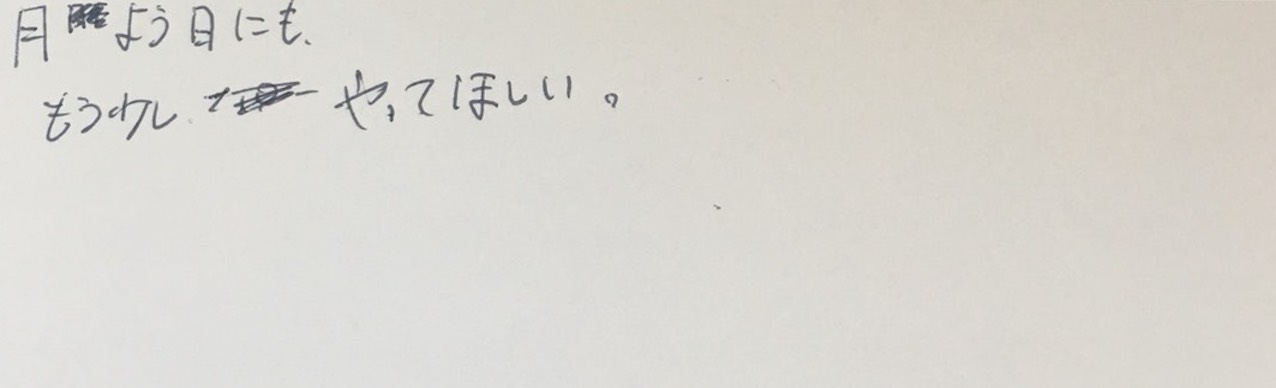 月よう日にも、
もう少し やってほしい。